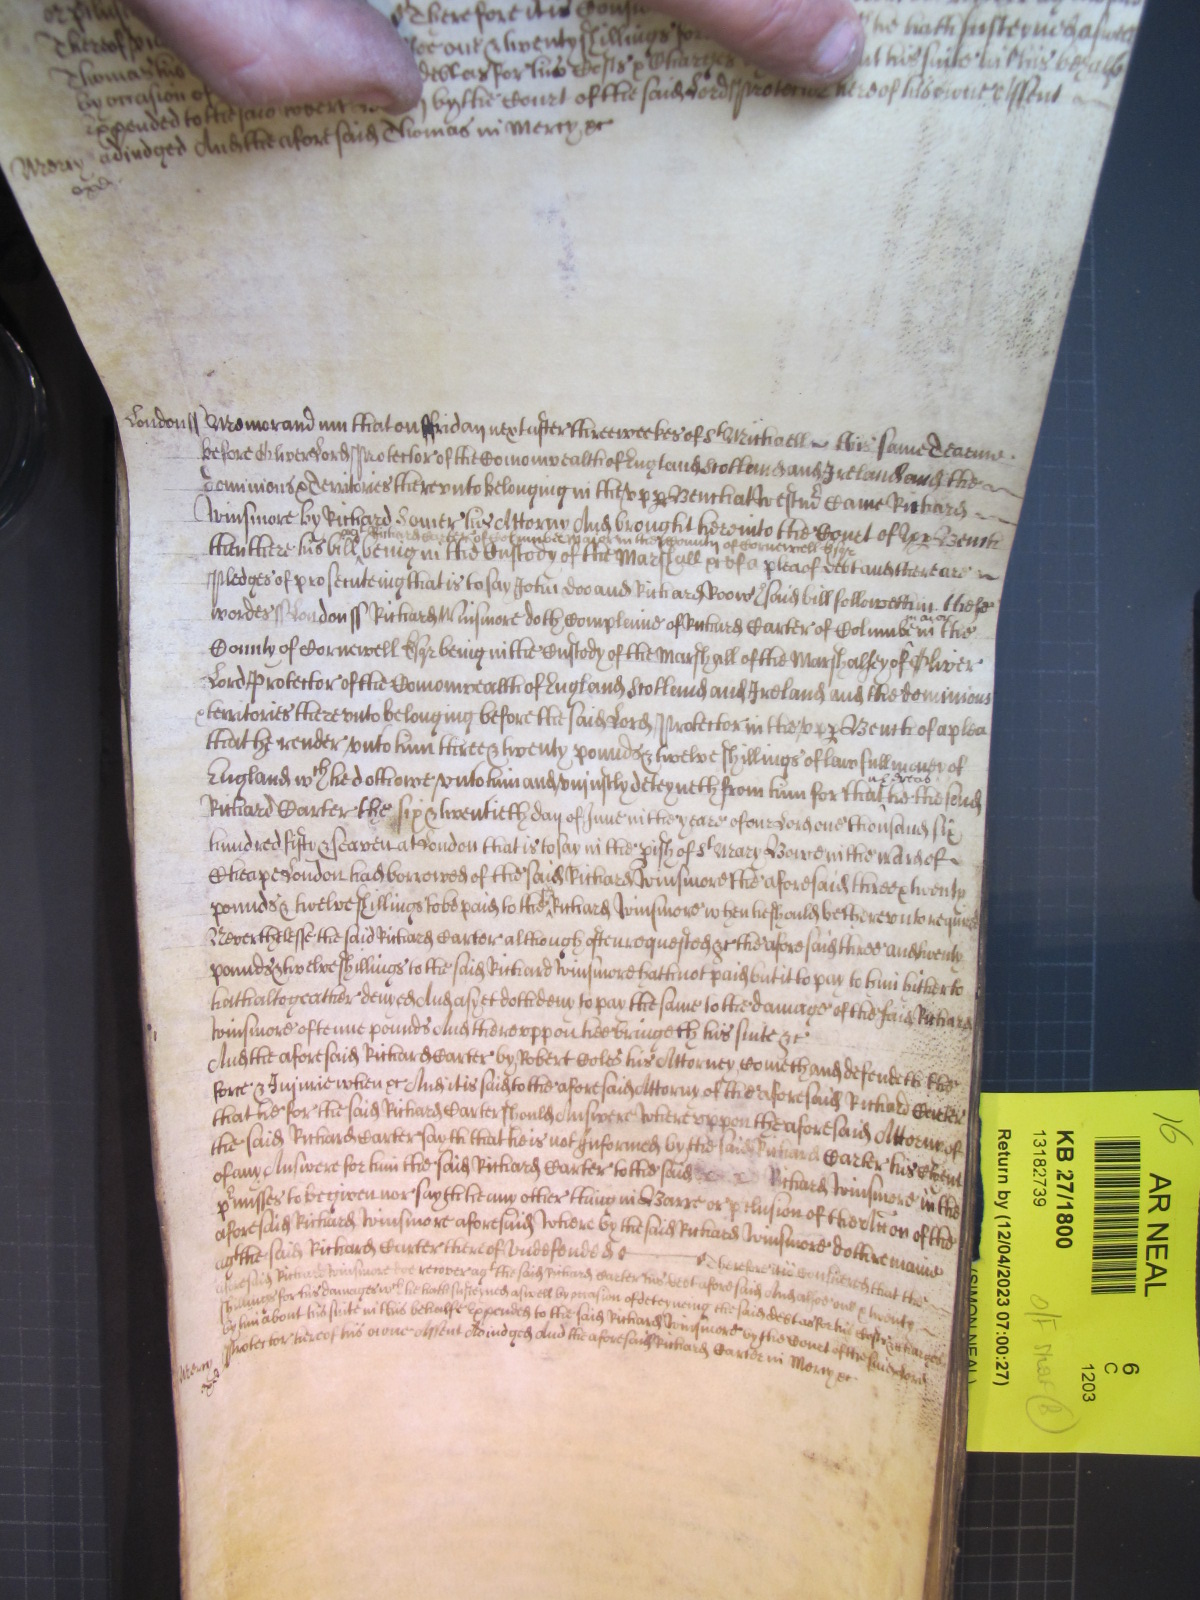 Therefore it is Consid
Thereof he hath susteyned aswell
by occasion of
Expended to the said Robert by the Court of the said Lord Protector hereof his owne assent
adiudged And the aforesaid Thomas in Mercy &c
Mercy
London ss Memorandum that on Friday next after three weekes of St Michaell this same Tearme
before Oliver Lord Protector of the Comonwealth of England Scotland and Ireland and the
Dominions & Territories thereunto belonging in the upp Bench at Westmr Came Richard
Winsmore by Richard Homer his Attorny And brought here into the Court of Upp Bench
agt Richard Carter of Columbe maior in the County of Cornewell Esqr
then there his bill being in the Custody of the Marshall &c of a plea of debt and there are
Pledges of prosecuteing that is to say John doo and Richard Roo wch said bill followeth in these
wordes ss London ss Richard Winsmore doth Complaine of Richard Carter of Columbe maior in the
County of Cornewell Esqr being in the Custody of the Marshall of the Marshalsey of Oliver
Lord Protector of the Comonwealth of England Scotland and Ireland and the dominions
& territories thereunto belonging before the said Lord Protector in the upp Bench of a plea
that he render unto him three & twenty pounds & twelve shillings of lawfull money of
England wch he doth owe unto him and uniustly deteyneth from him for that whereas he the said
Richard Carter the six & twentieth day of June in the yeare of our Lord one thousand six
hundred fifty & seaven at London that is to say in the pish of St Mary Bowe in the ward of
Cheape London had borrowed of the said Richard Winsmore the aforesaid three & twenty
pounds & twelve shillings to be paid to the sd Richard Winsmore when he should be thereunto required
Neverthelesse the said Richard Carter although often requested &c the aforesaid three and twenty
pounds & twelve shillings to the said Richard Winsmore hath not paid but it to pay to him hitherto
hath altogeather denyed And as yet doth deny to pay the same to the damage of the said Richard
Winsmore of tenne pounds And thereuppon hee bringeth his suite &c
And the aforesaid Richard Carter by Robert Coles his Attorney Cometh and defendeth the
force & Iniurie when &c And it is said to the aforesaid Attorny of the aforesaid Richard Carter
that he for the said Richard Carter should Answere whereuppon the aforesaid Attorny of
the said Richard Carter sayth that he is not Informed by the said Richard Carter his Clyent
of any Answere for him the said Richard Carter to the said Richard Winsmore in the
pmisses to be given nor sayth he any other thing in Barre or pclusion of the Accon of the
aforesaid Richard Winsmore aforesaid Whereby the said Richard Winsmore doth remaine
agt the said Richard Carter thereof Undefended &c Therefore it is Considered that the
aforesaid Richard Winsmore doe recover agt the said Richard Carter his debt aforesaid And alsoe one & twenty
shillings for his damages wch he hath susteyned aswell by occasion of deteyneing the said debt as for his Costs & charges
by him about his suite in this behalfe Expended to the said Richard Winsmore by the Court of the said Lord
Protector hereof his owne assent Adiudged And the aforesaid Richard Carter in Mercy &c
Mercy
16
AR NEAL
KB 27/1800
13182739
Return by (12/04/2023 07:00:27)
(SIMON NEAL)
6
C
1203